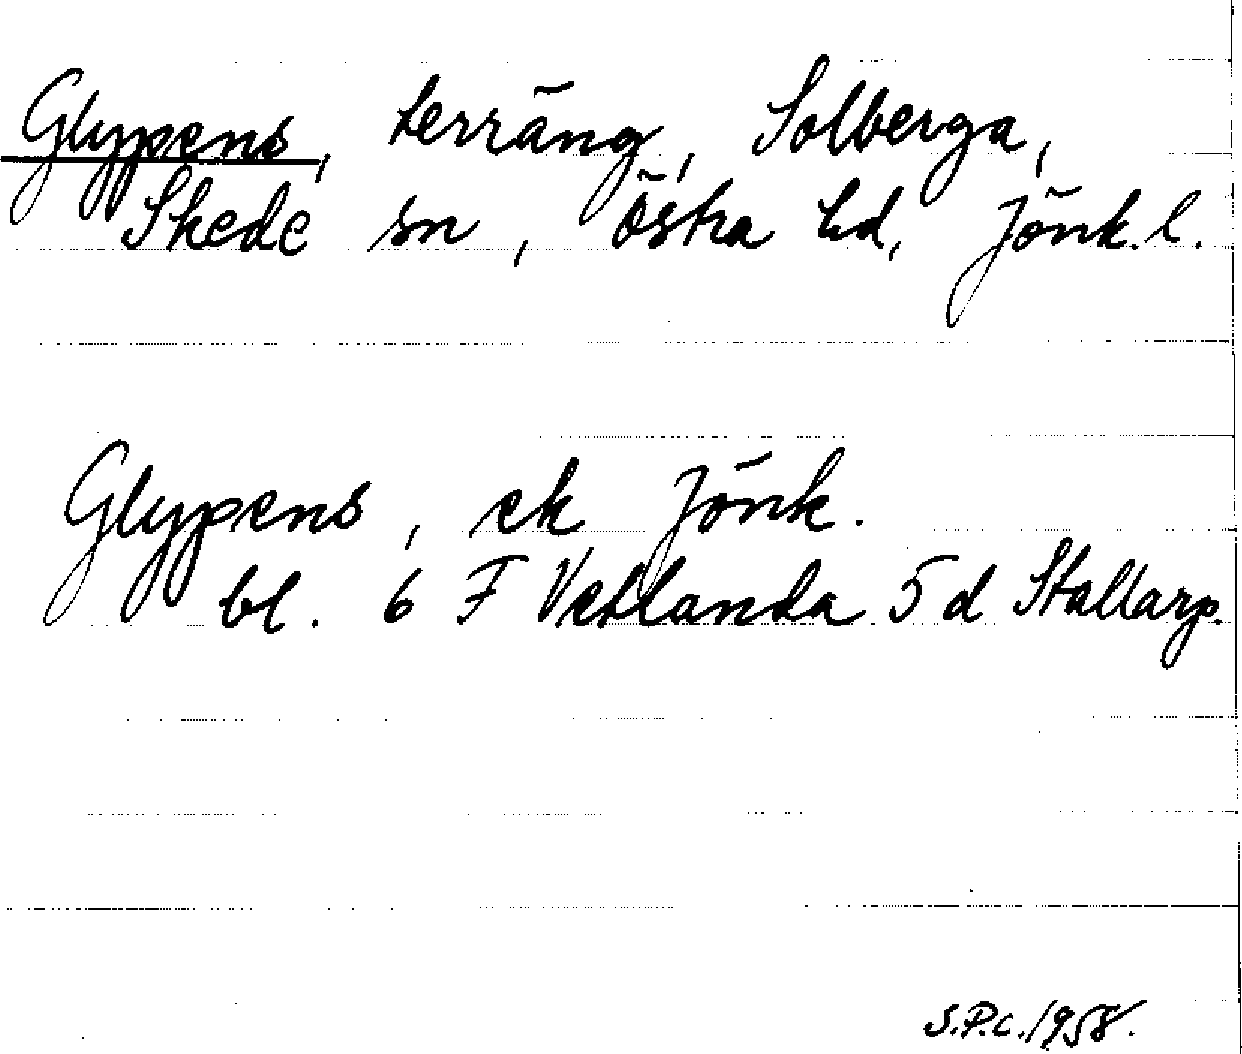 Glypens, terräng, Solberga,
Skede sn, Östra hd, Jönk. l.
Glypens, ek Jönk.
bl. 6 F Vetlanda 5 d Stallarp.
S.P.C. 1958.